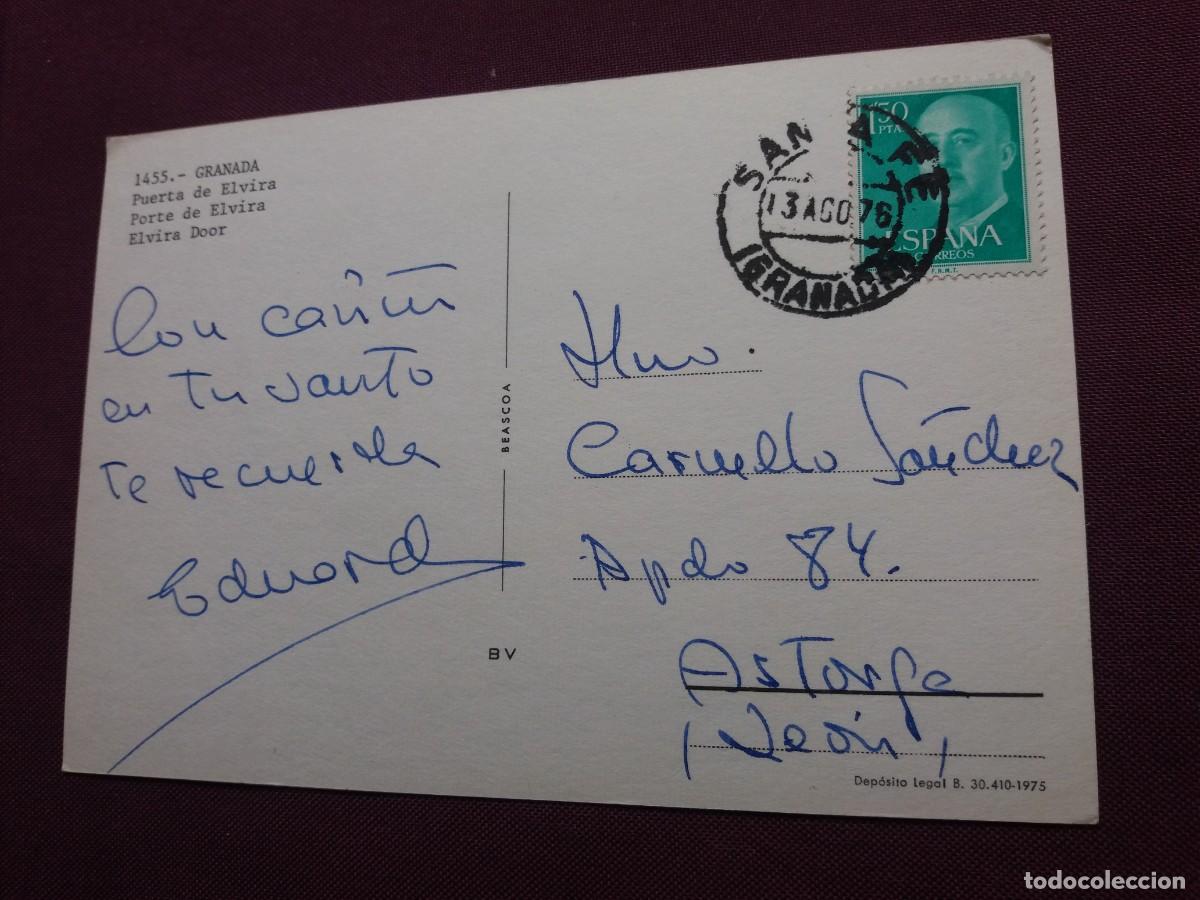 1455.- GRANADA
Puerta de Elvira
Porte de Elvira
Elvira Door
Con cariño
en tu santo
te recuerda
Eduardo
BEASCOA
BV
1'50
PTA
ESPAÑA
CORREOS
F.N.M.T.
SANTA FE
13 AGO 76
(GRANADA)
Hno.
Carmelo Sánchez
Apdo 84.
Astorga
(León)
Depósito Legal B. 30.410-1975
todocoleccion